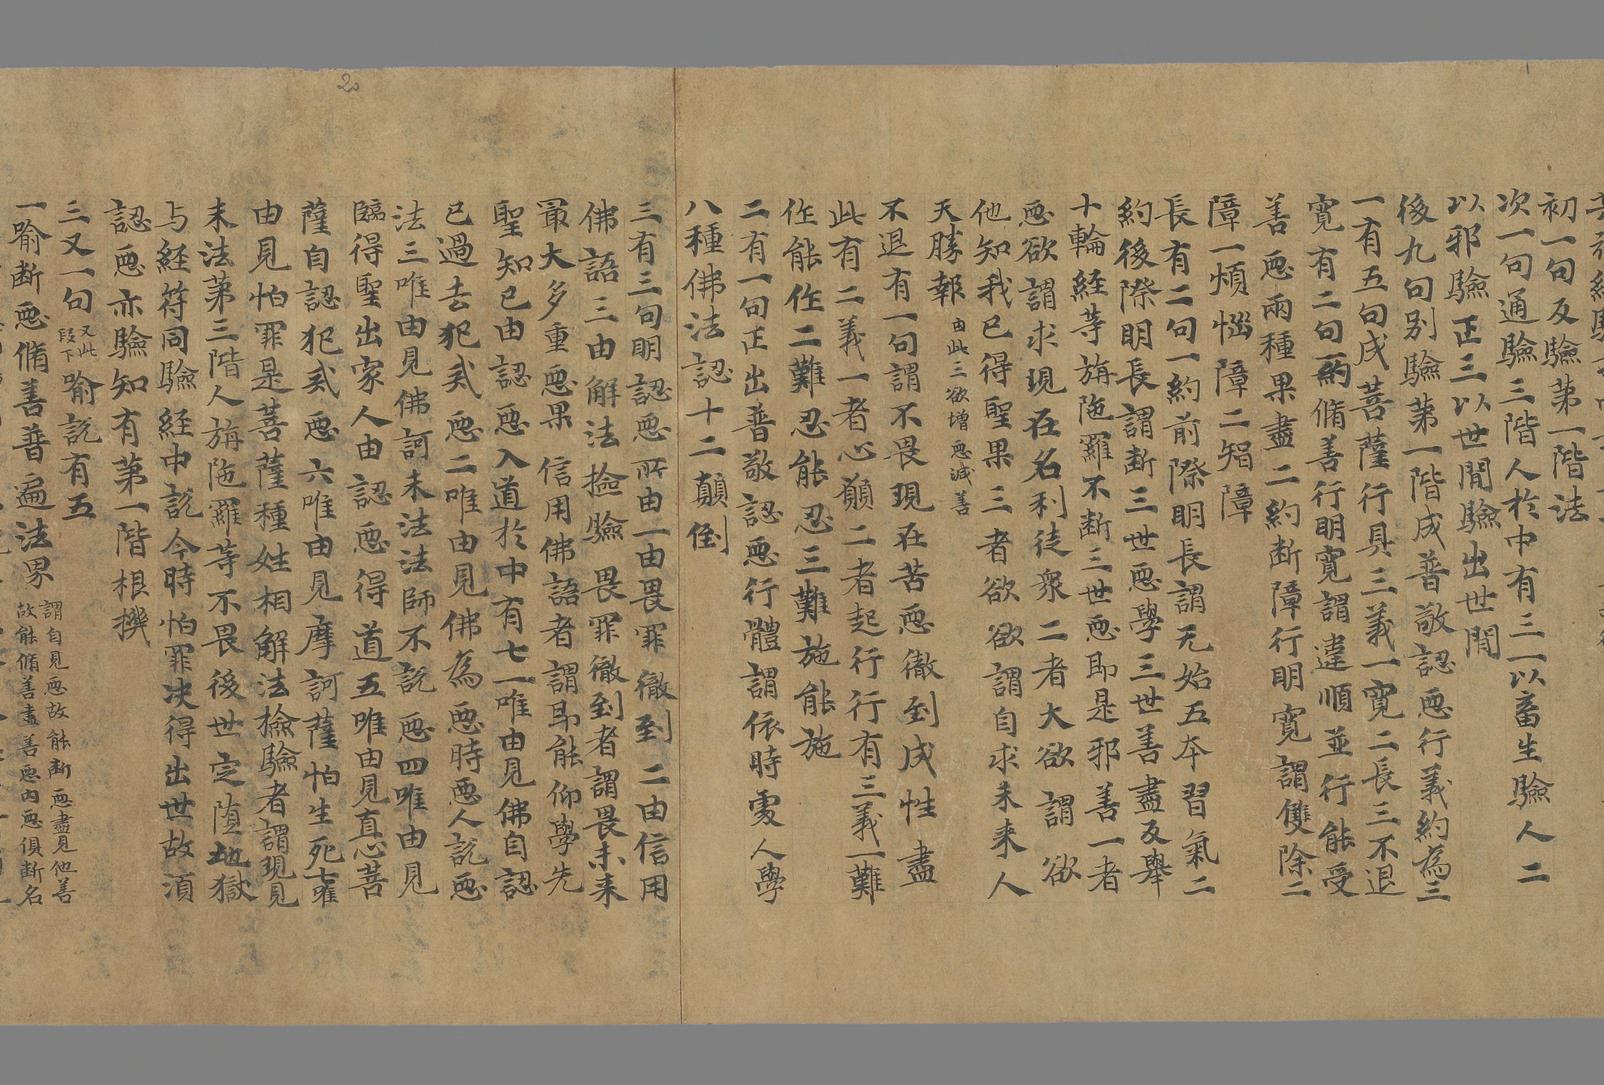 初一句反驗第一階法
次一句通驗三階人於中有三一以畜生驗人二
以邪驗正三以世間驗出世間
後九句別驗第一階成普敬認惡行義約為三
一有五句成菩薩行具三義一寬二長三不退
寬有二句一約脩善行明寬謂違順並行能受
善惡兩種果盡二約斷障行明寬謂雙除二
障一煩惱障二智障
長有二句一約前際明長謂无始五夲習氣二
約後際明長謂斷三世惡學三世善盡及舉
十輪経等旃陁羅不斷三世惡即是邪善一者
惡欲謂求現在名利徒衆二者大欲謂欲
他知我已得聖果三者欲欲謂自求未来人
天勝報 由此三欲增惡滅善
不退有一句謂不畏現在苦惡徹到成性盡
此有二義一者心願二者起行行有三義一難
作能作二難忍能忍三難施能施
二有一句正出普敬認惡行體謂依時處人學
八種佛法認十二顛倒
三有三句明認惡所由一由畏罪徹到二由信用
佛語三由解法撿驗畏罪徹到者謂畏未来
最大多重惡果信用佛語者謂即能仰學先
聖知已由認惡入道於中有七一唯由見佛自認
已過去犯戒惡二唯由見佛為惡時惡人說惡
法三唯由見佛訶末法法師不說惡四唯由見
臨得聖出家人由認惡得道五唯由見直心菩
薩自認犯戒惡六唯由見摩訶薩怕生死七唯
由見怕罪是菩薩種姓相解法撿驗者謂現見
末法第三階人旃陁羅等不畏後世定墮地獄
与経符同驗経中說今時怕罪决得出世故須
認惡亦驗知有第一階根機
三又一句 又此段下 喻說有五
一喻斷惡脩善普遍法界 謂自見惡故能斷惡盡見他善故能脩善盡善惡內惡俱斷名